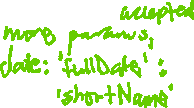 accepted
more params,
date: 'fullDate';
'shortName'